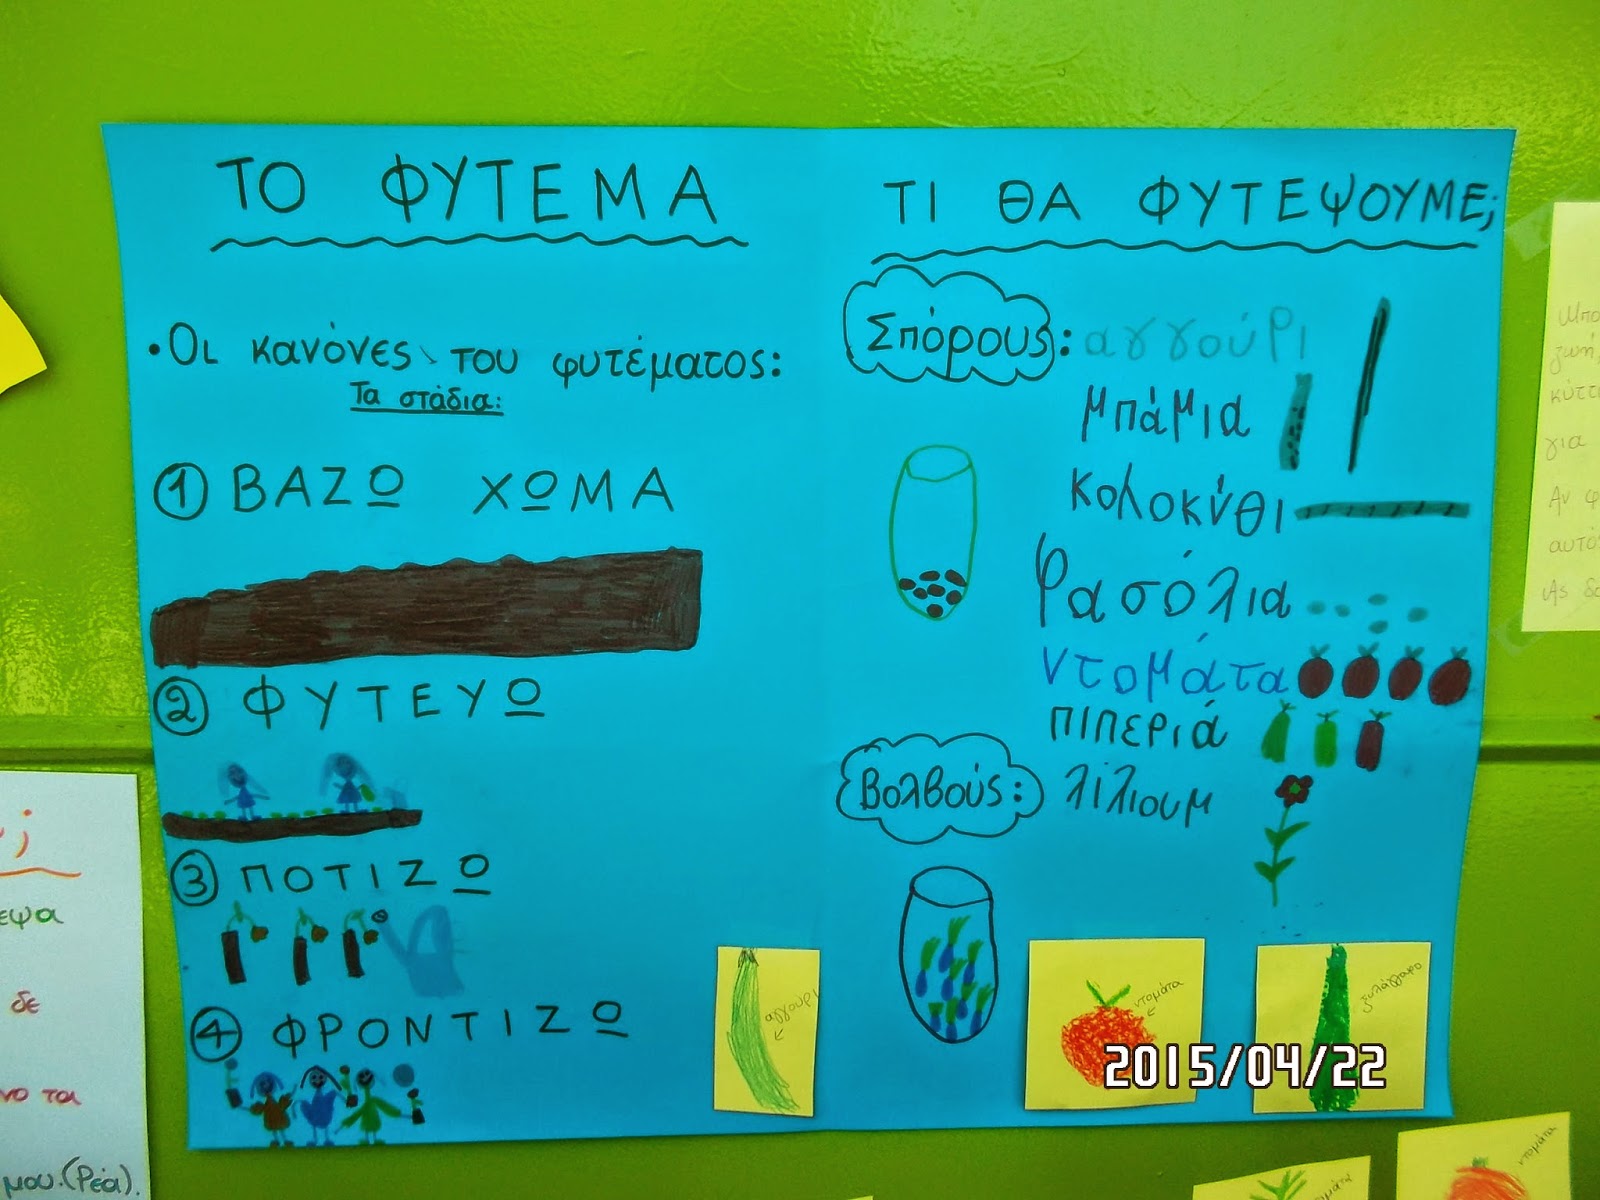 ΤΟ ΦΥΤΕΜΑ
• Οι κανόνες του φυτέματος:
Τα στάδια:
1 ΒΑΖΩ ΧΩΜΑ
2 ΦΥΤΕΥΩ
3 ΠΟΤΙΖΩ
4 ΦΡΟΝΤΙΖΩ
ΤΙ ΘΑ ΦΥΤΕΨΟΥΜΕ;
Σπόρους: αγγούρι
μπάμια
κολοκύθι
Φασόλια
ντομάτα
πιπεριά
Βολβούς: λίλιουμ
αγγούρι
ντομάτα
ξυλάγγουρο
2015/04/22
ζωή
για
Αν
δε
να τα
μου.(Ρέα).
ντομάτα